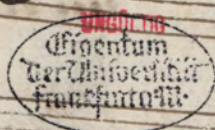 UNGÜLTIG
Eigentum
der Universität
Frankfurt a/M.